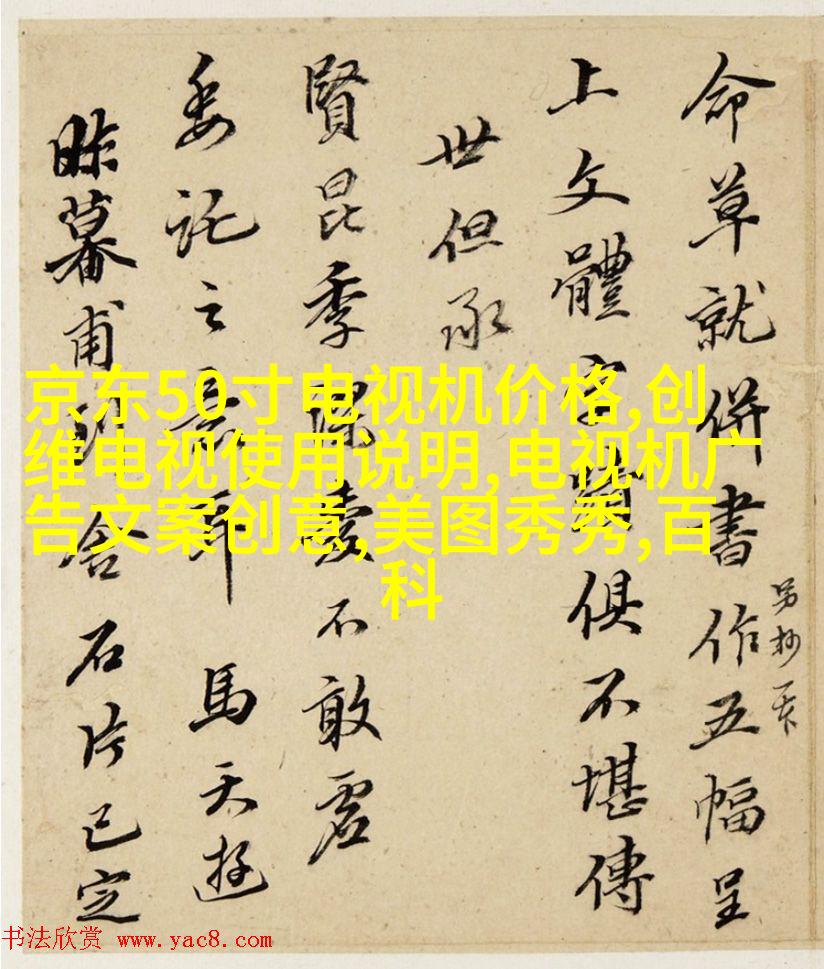 命草就併書作五幅呈
另抄一天
上文體字
俱不堪傳
世但承
賢昆季
不敢虛
委託之
馬天游
昨暮甫
舍石片已定
京东50寸电视机价格,创
维电视使用说明,电视机广
告文案创意,美图秀秀,百
科
书法欣赏 www.yac8.com